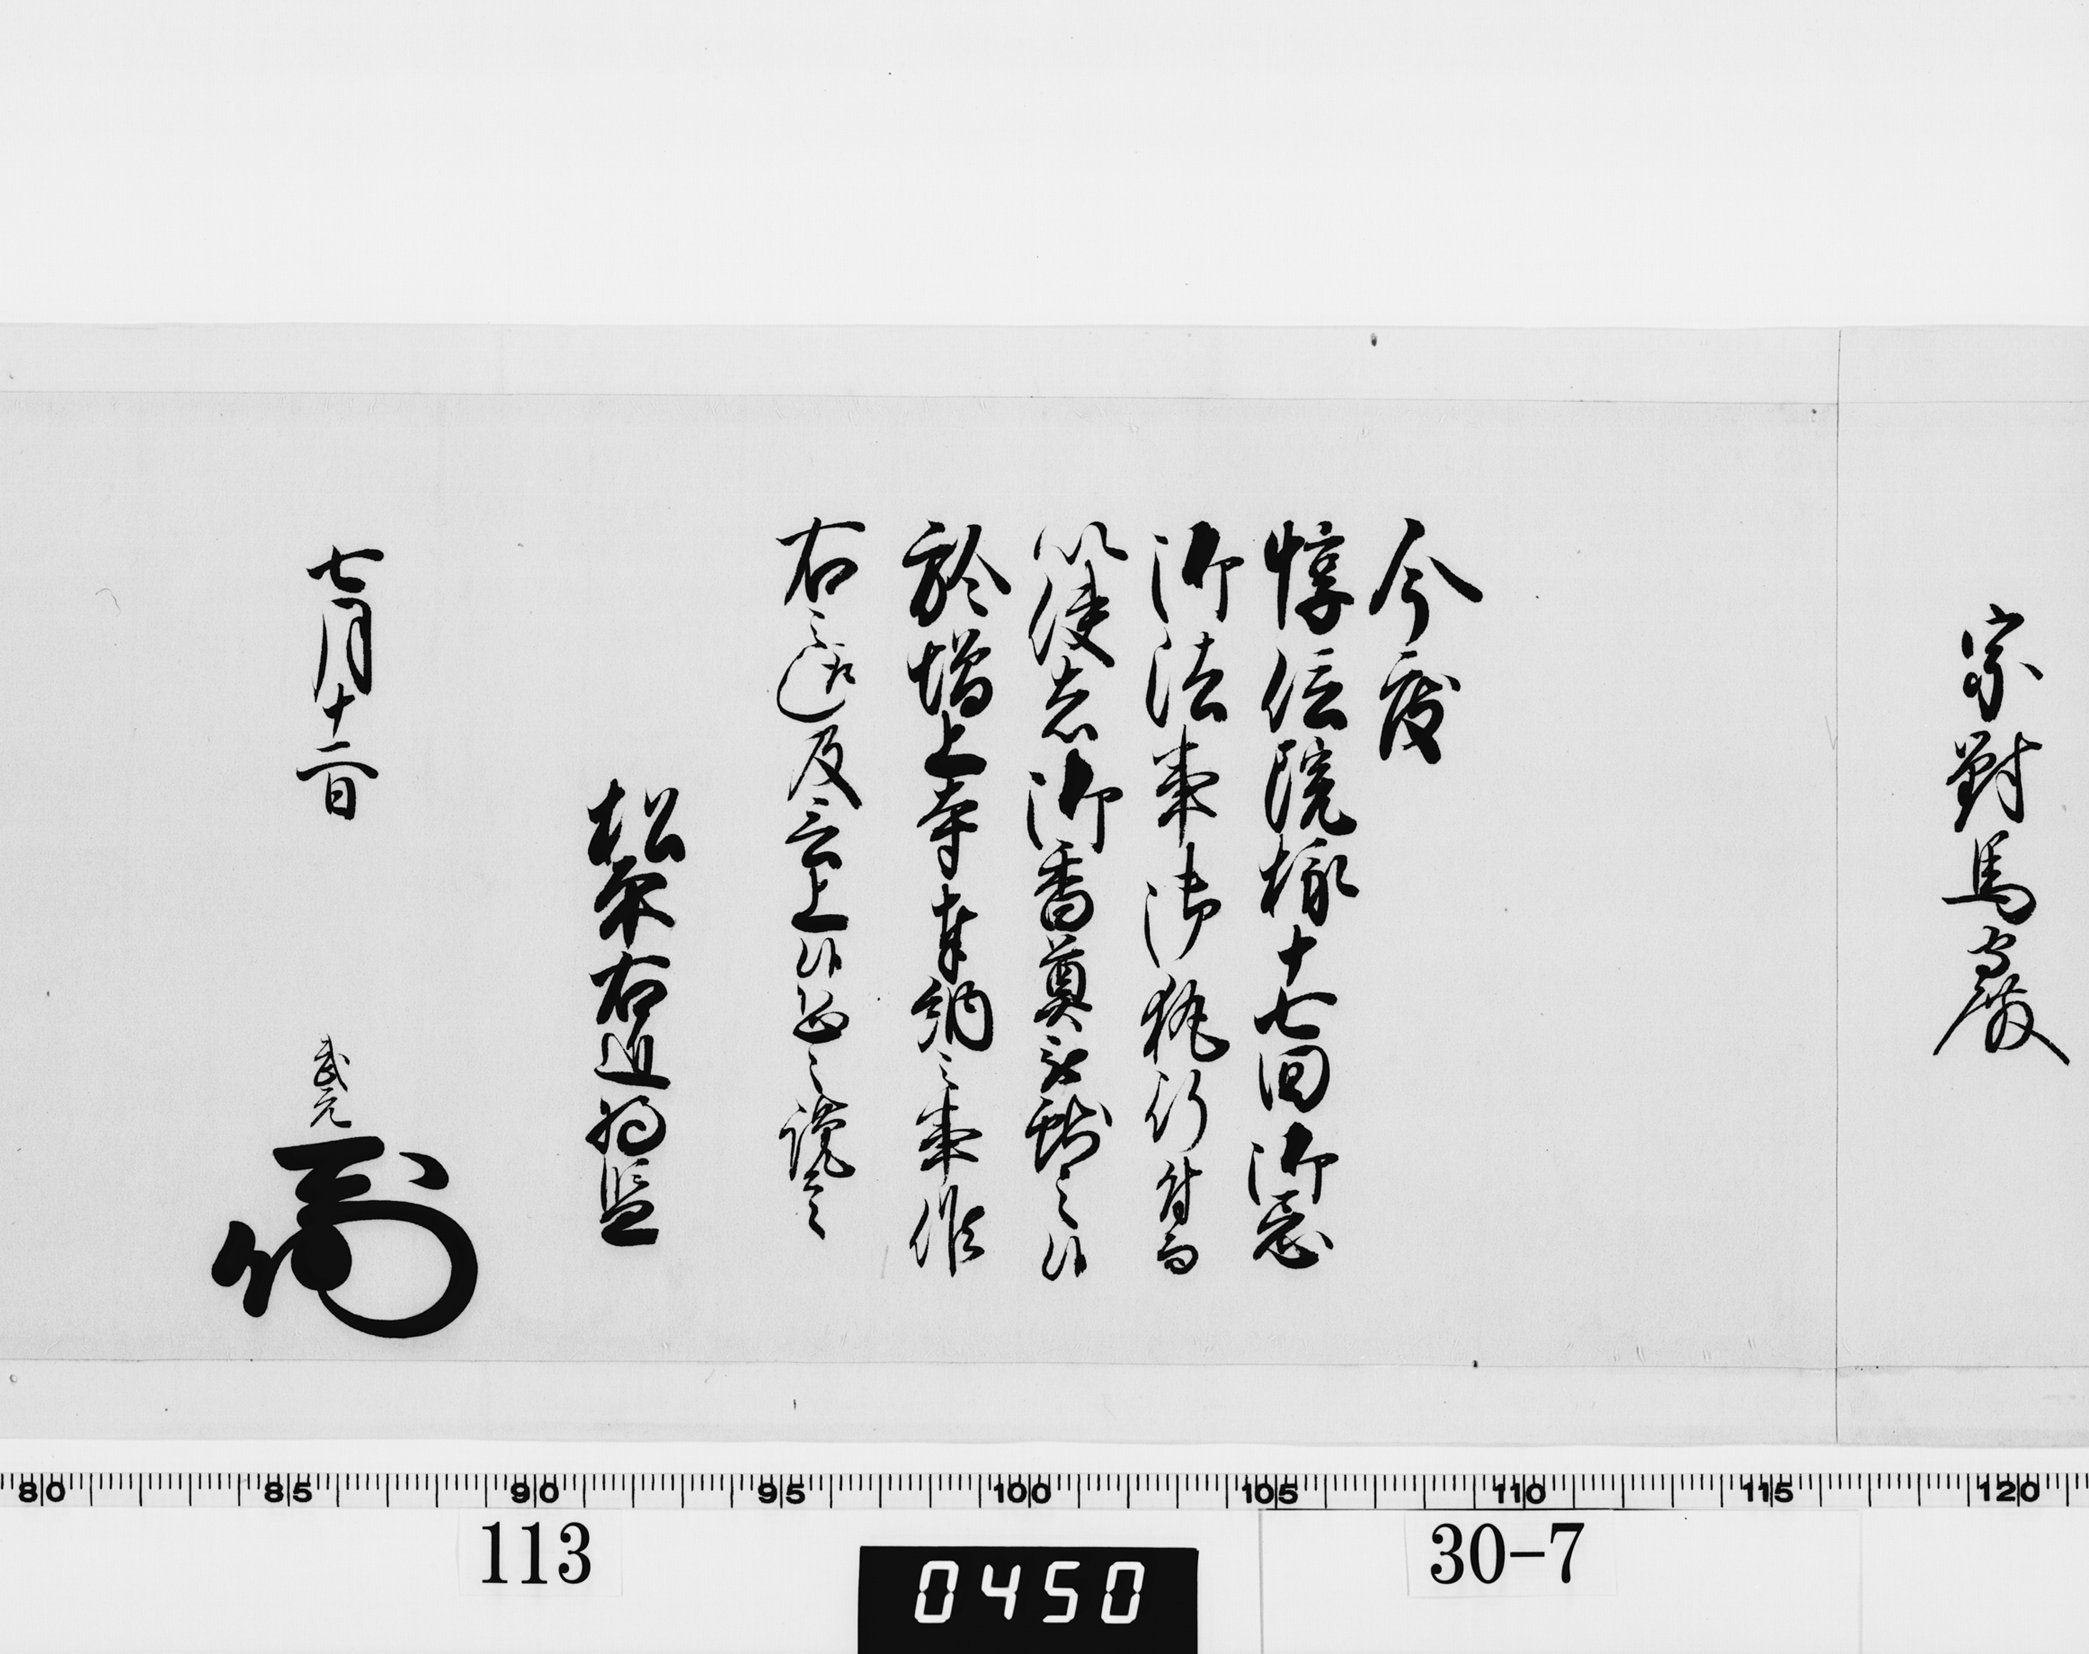 宗對馬守殿
今度
惇信院様十七回御忌
御法事御執行付而
以使者御香奠被献之候
於増上寺奉納之事候
右之趣及言上候恐々謹言
松平右近将監
七月十二日
武元
80 85 90 95 100 105 110 115 120
113
30-7
0450